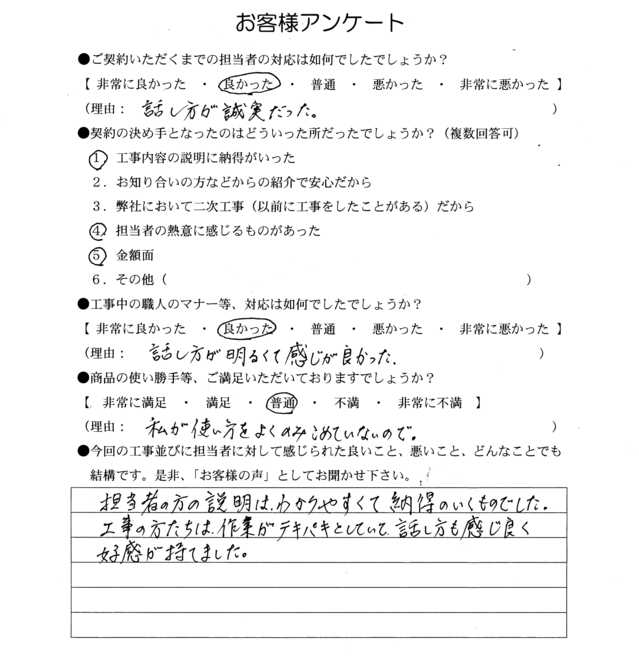 お客様アンケート
●ご契約いただくまでの担当者の対応は如何でしたでしょうか？
【 非常に良かった ・ 良かった ・ 普通 ・ 悪かった ・ 非常に悪かった 】
（理由： 話し方が誠実だった。 ）
●契約の決め手となったのはどういった所だったでしょうか？（複数回答可）
1．工事内容の説明に納得がいった
2．お知り合いの方などからの紹介で安心だから
3．弊社において二次工事（以前に工事をしたことがある）だから
4．担当者の熱意に感じるものがあった
5．金額面
6．その他（ ）
●工事中の職人のマナー等、対応は如何でしたでしょうか？
【 非常に良かった ・ 良かった ・ 普通 ・ 悪かった ・ 非常に悪かった 】
（理由： 話し方が明るくて感じが良かった、 ）
●商品の使い勝手等、ご満足いただいておりますでしょうか？
【 非常に満足 ・ 満足 ・ 普通 ・ 不満 ・ 非常に不満 】
（理由： 私が使い方をよくのみこめていないので。 ）
●今回の工事並びに担当者に対して感じられた良いこと、悪いこと、どんなことでも
結構です。是非、「お客様の声」としてお聞かせ下さい。
担当者の方の説明は、わかりやすくて納得のいくものでした。
工事の方たちは、作業がテキパキとしていて、話し方も感じ良く
好感が持てました。